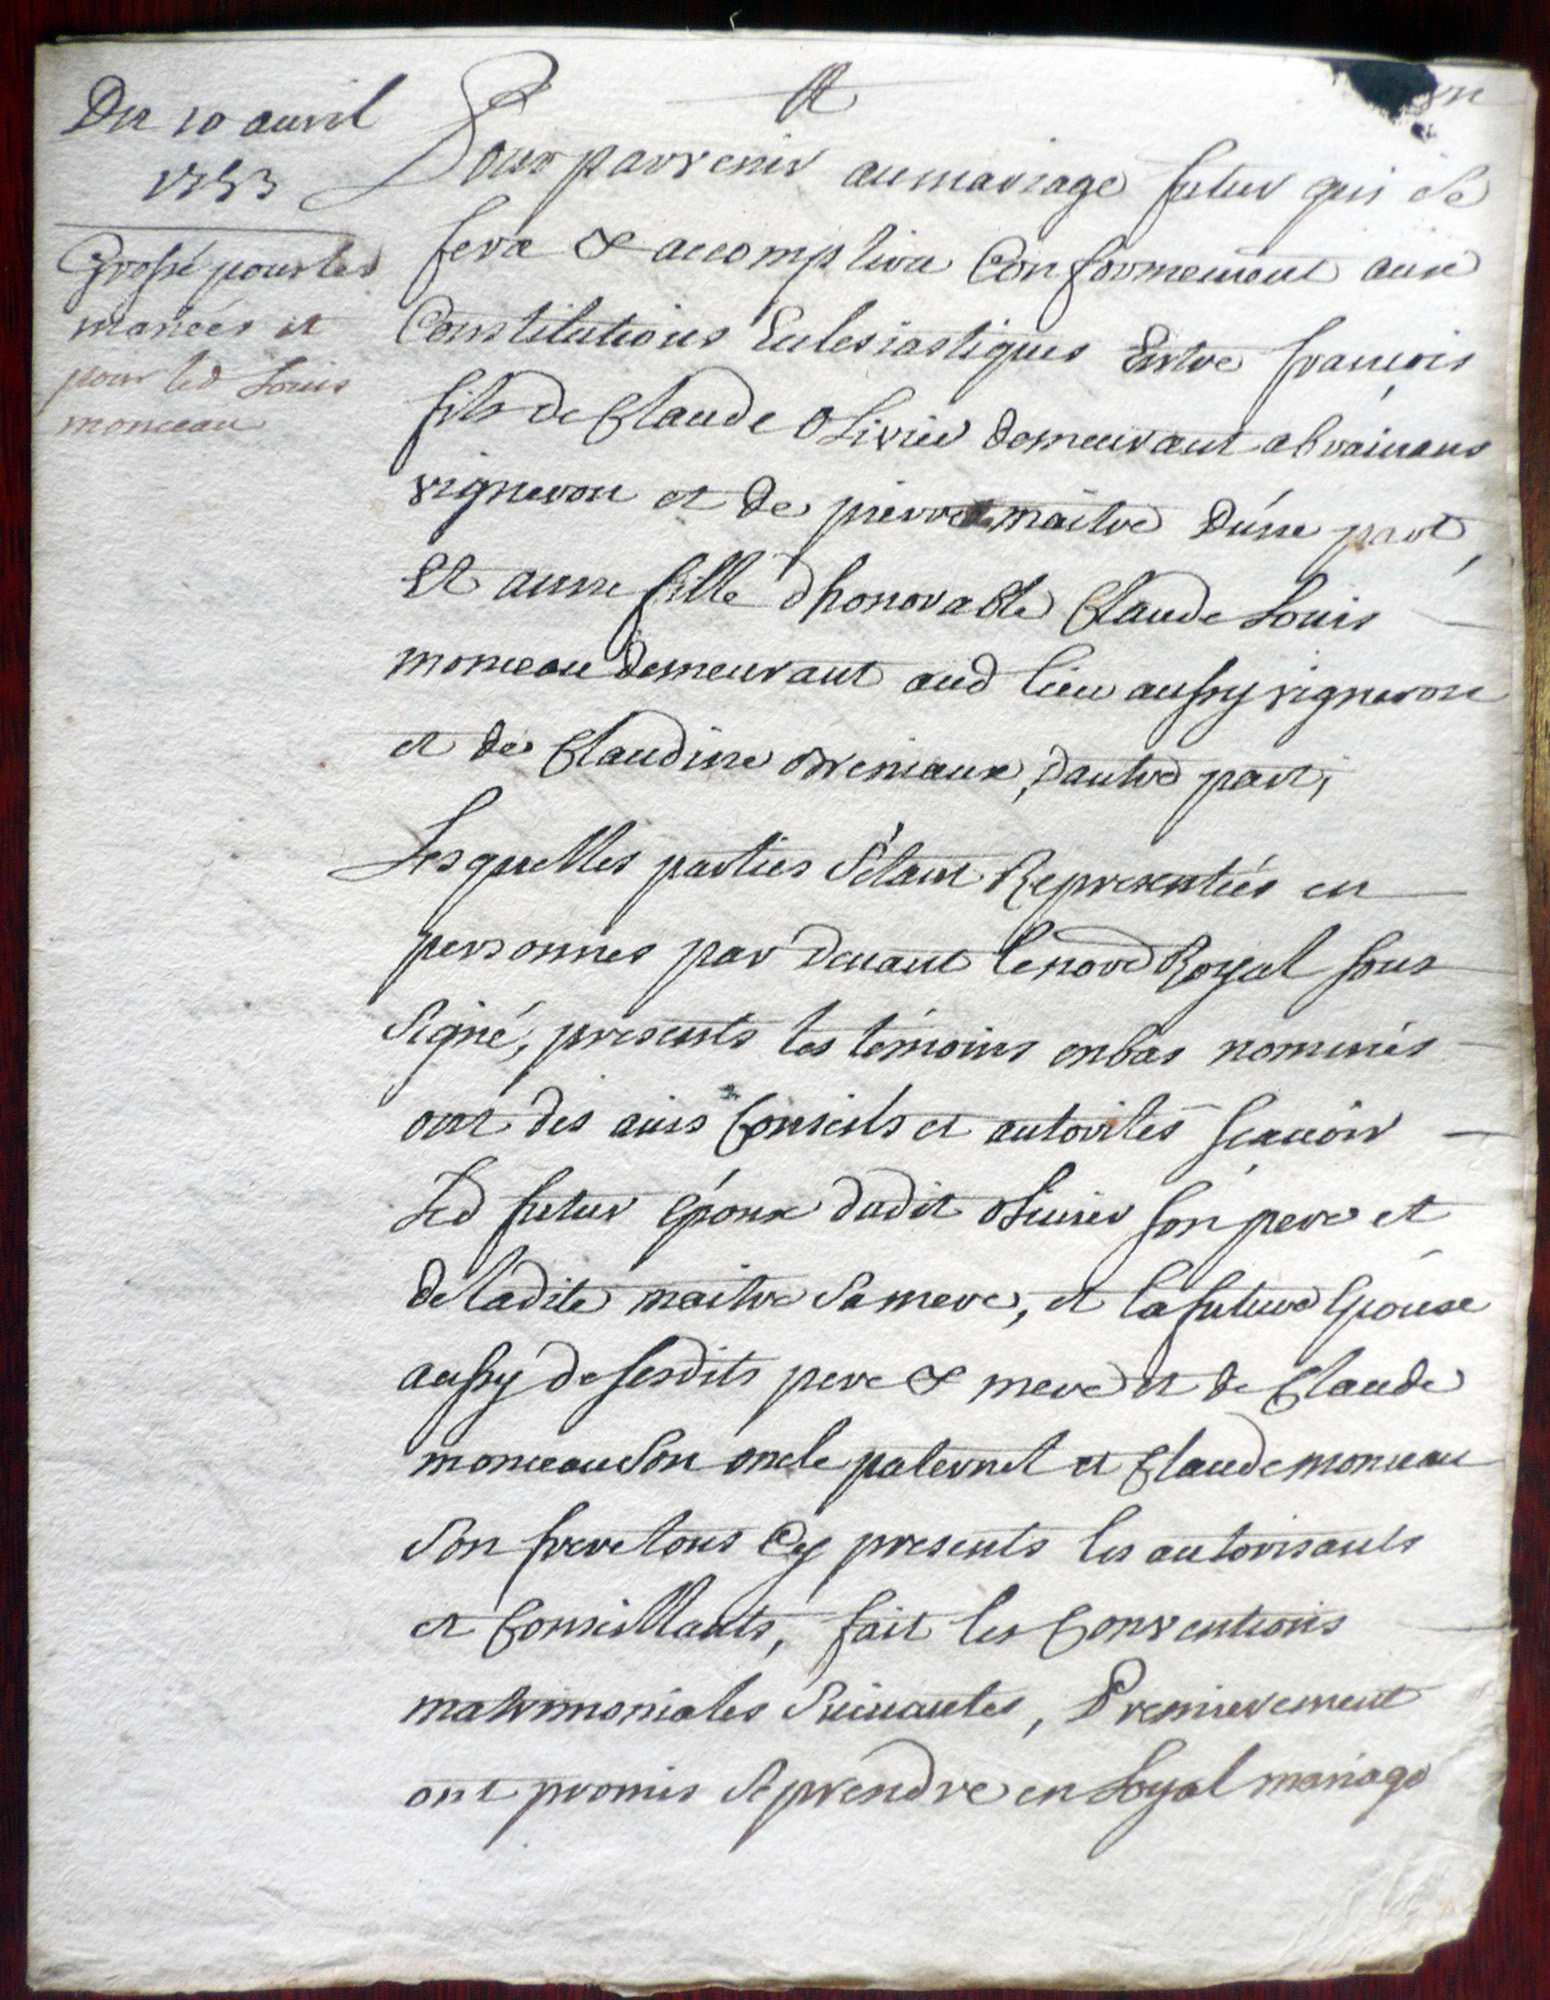 Du 10 avril
1753
Grossé pour les
mariées et
pour led Louis
monceau
Pour parvenir au mariage futur qui se
fera & accomplira Conformement aux
Constitutions Eclesiastiques Entre françois
fils de Claude Olivier demeurant a
vigneron et de pierrette maitre d'une part,
Et anne fille d'honorable Claude Louis
monceau demeurant aud lieu aussy vigneron
et de Claudine d'autre part,
Lesquelles parties s'étant Representées en
personnes par devant le nore Royal sous
signé, presents les témoins en bas nommés
ont des avis Conseils et autorités scavoir
Led futur époux dudit olivier son pere et
de ladite maitre sa mere, et la future épouse
aussy de sesdits pere & mere et de Claude
monceau son oncle paternel et Claude monceau
son frere tous Cy presents les autorisants
et Conseillants, fait les Conventions
matrimoniales suivantes, Premierement
ont promis se prendre en Loyal mariage